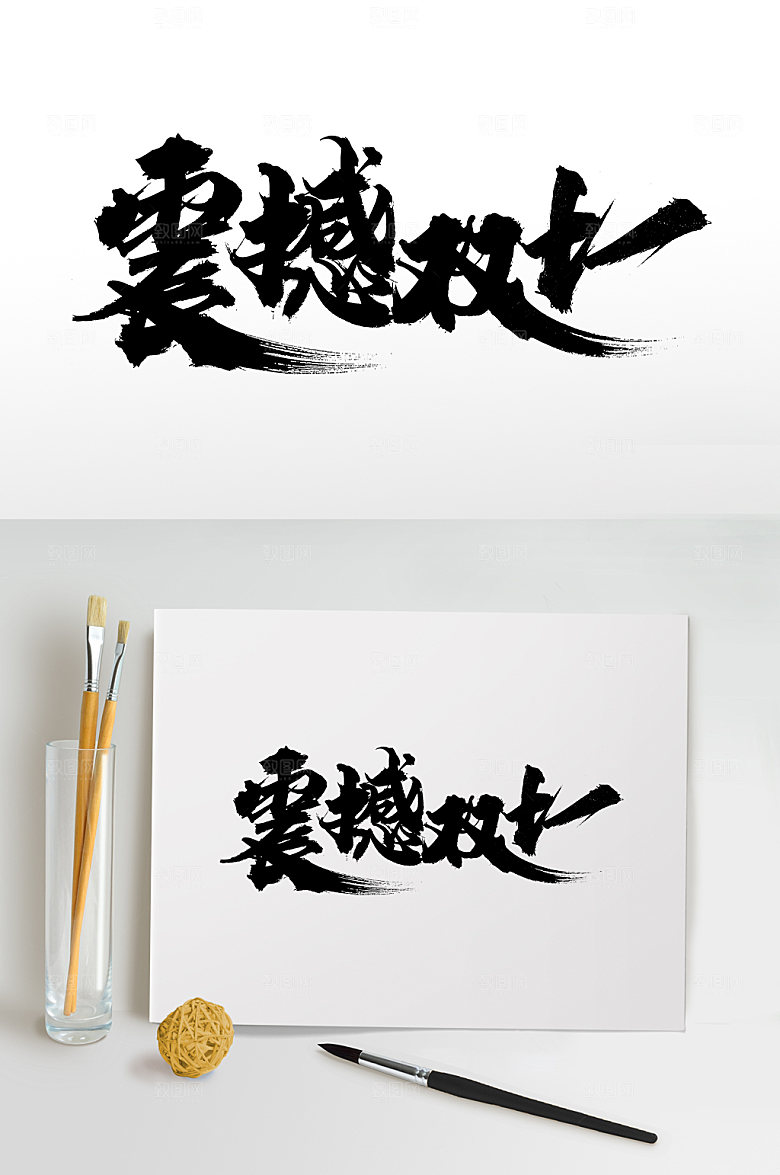 震撼双十一
震撼双十一